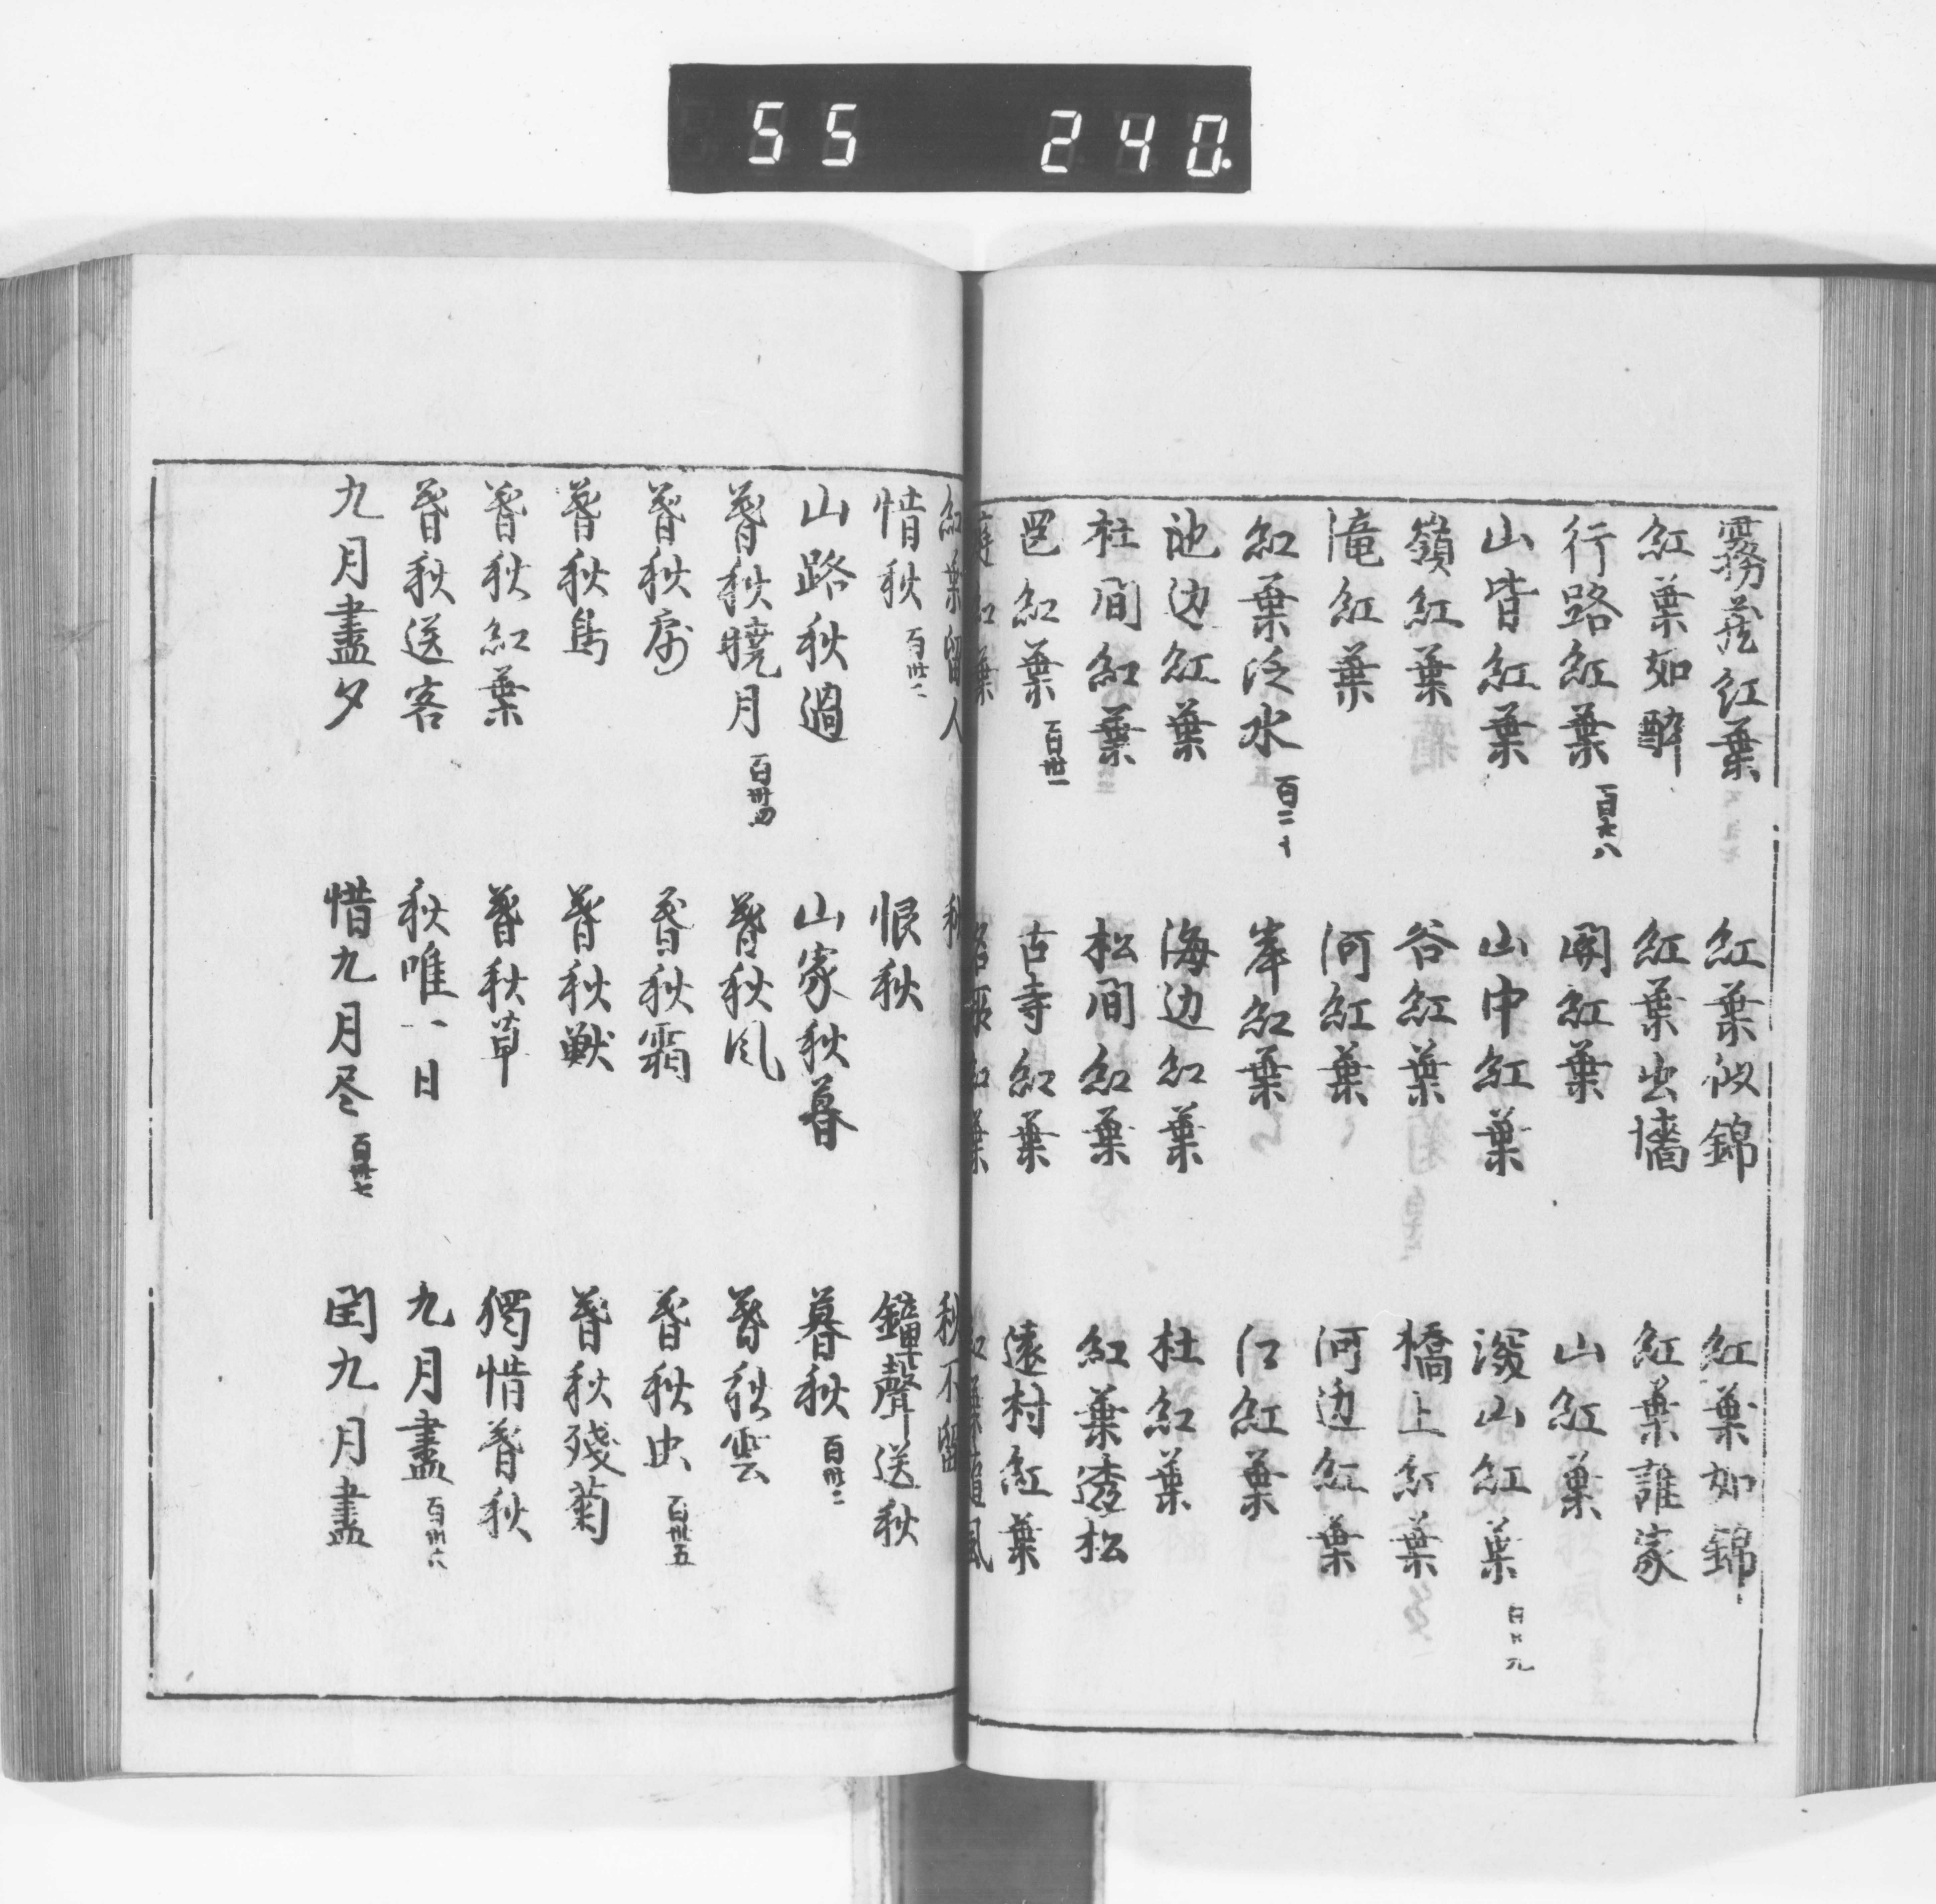 55 240.
霧並紅葉 紅葉似錦 紅葉如錦
紅葉如醉 紅葉出墻 紅葉誰家
行路紅葉 百六八 関紅葉 山紅葉
山皆紅葉 山中紅葉 深山紅葉
嶺紅葉 谷紅葉 橋上紅葉
滝紅葉 河紅葉 河辺紅葉
紅葉泛水 岸紅葉 江紅葉
池辺紅葉 海辺紅葉 杜紅葉
杜間紅葉 松間紅葉 紅葉透松
邑紅葉 百卅一 古寺紅葉 遠村紅葉
紅葉留人 秋 秋不留
惜秋 恨秋 鐘聲送秋
山路秋過 山家秋暮 暮秋 百卅三
暮秋暁月 百卅四 暮秋風 暮秋雲
暮秋 暮秋霜 暮秋虫 百卅五
暮秋鳥 暮秋獣 暮秋残菊
暮秋紅葉 暮秋草 獨惜暮秋
暮秋送客 秋唯一日 九月盡 百卅六
九月盡夕 惜九月尽 百卅七 閏九月盡